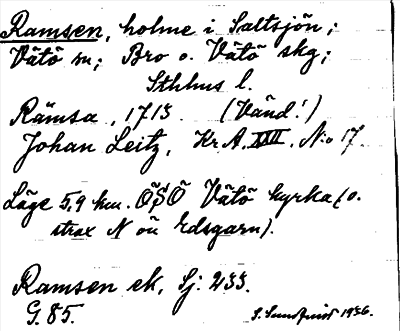 Ramsen, holme i Saltsjön;
Vätö sn; Bro o. Vätö skg;
Sthlms l.
Rämsa, 1715 (Vänd!)
Johan Leitz, Kr A. XXII. N:o 17.
Läge 5,9 km. ÖSÖ Vätö kyrka (o.
strax N om Edsgarn).
Ramsen ek, Sj: 233.
G. 85.
S. Sundqvist 1936.